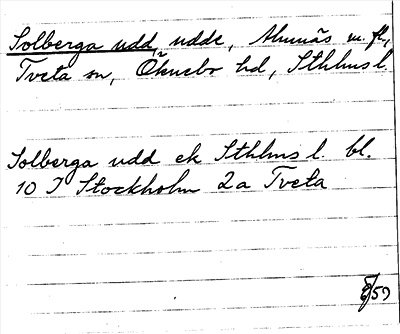 Solberga udd, udde, Almnäs m. fl.,
Tveta sn, Öknebo hd, Sthlms l.
Solberga udd ek Sthlms l. bl.
10 I Stockholm 2a Tveta
/59